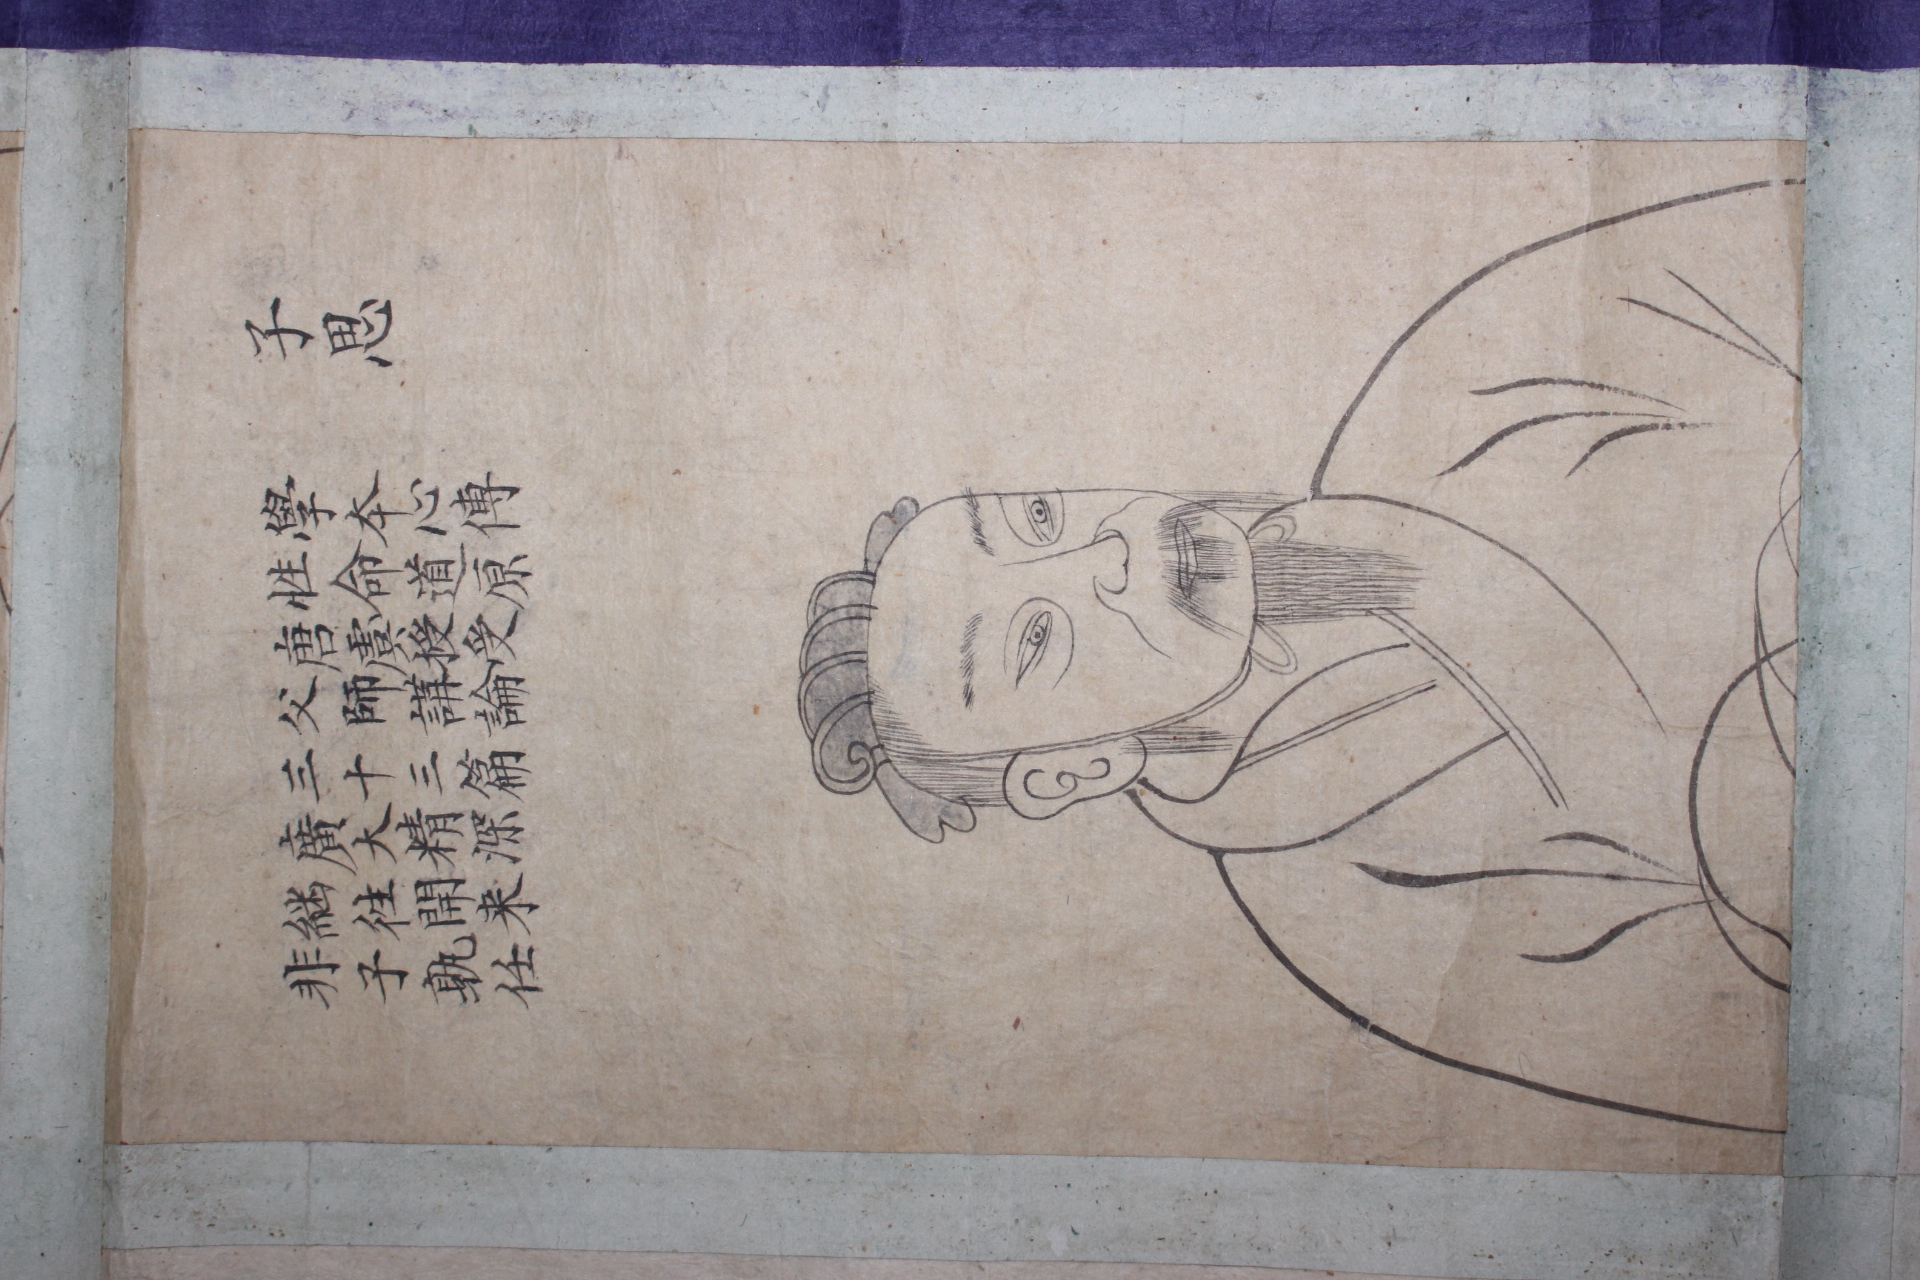 子思
學本心傳
性命道原
唐虞授受
父師講論
三十三篇
廣大精深
継往開来
非子孰任